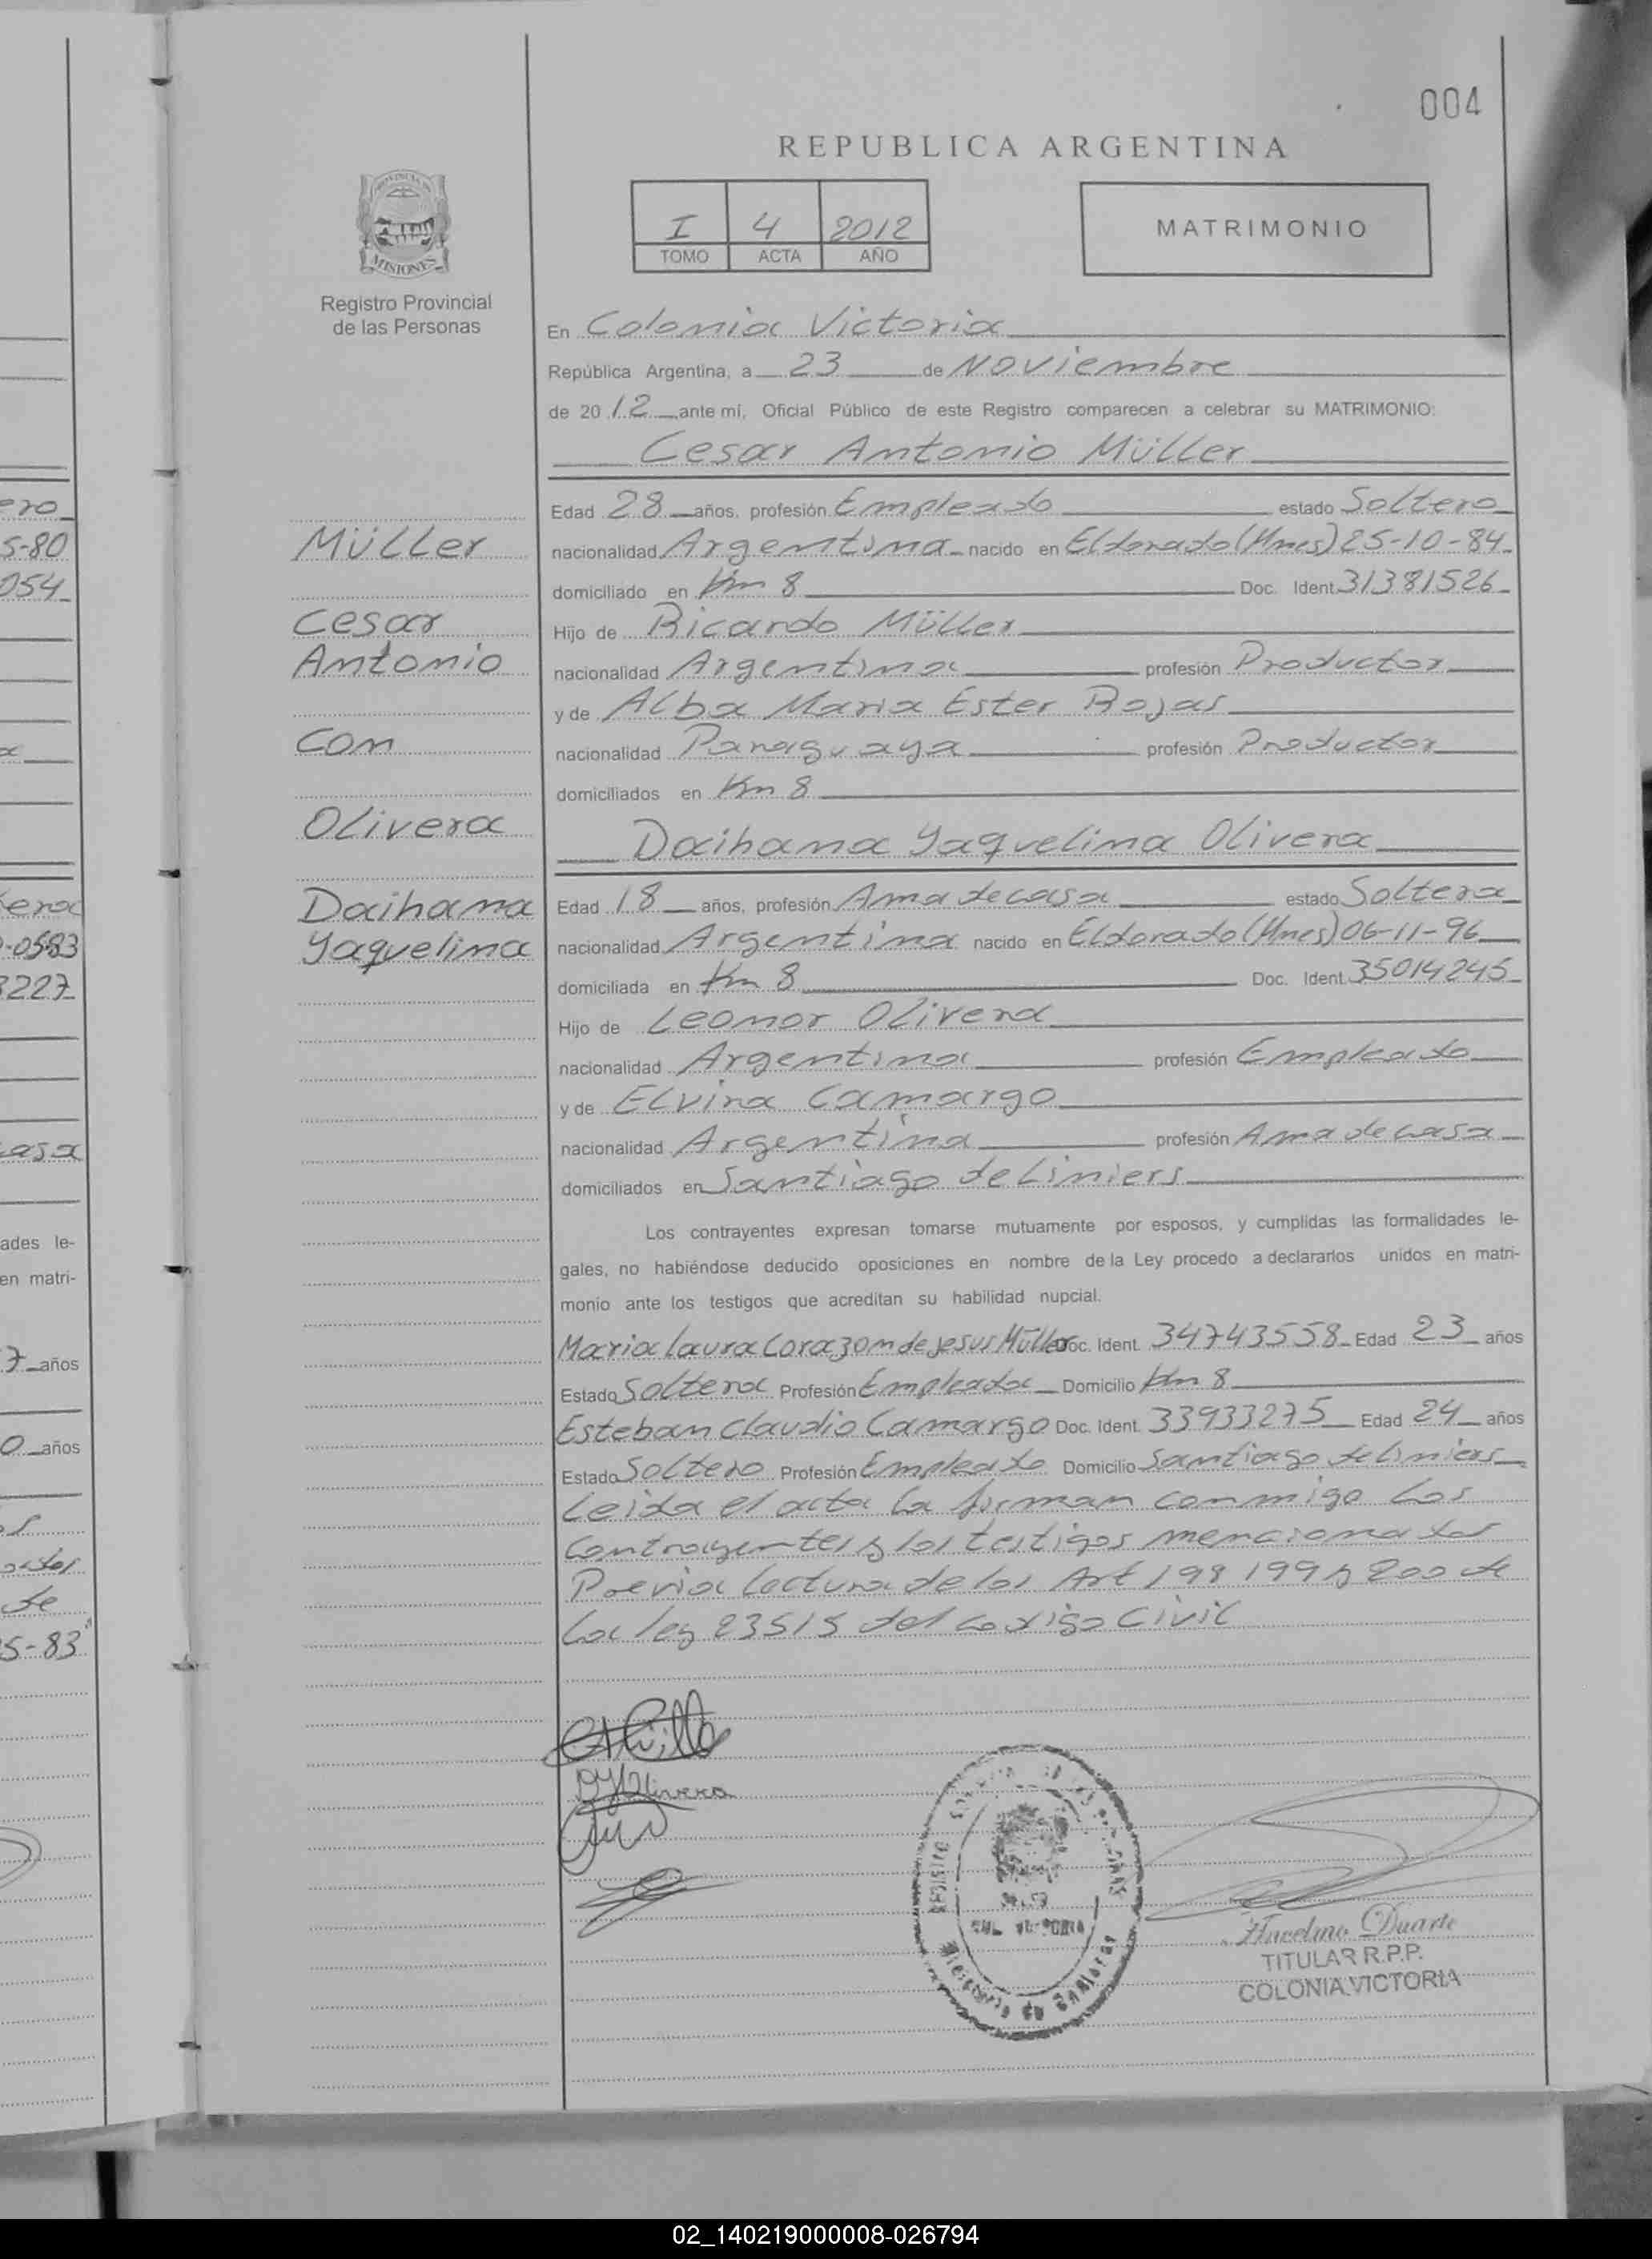 004
REPUBLICA ARGENTINA
I 4 2012
TOMO ACTA AÑO
MATRIMONIO
PROVINCIA DE
MISIONES
Registro Provincial
de las Personas
En Colonia Victoria
República Argentina, a 23 de Noviembre
de 2012 ante mí, Oficial Público de este Registro comparecen a celebrar su MATRIMONIO:
Cesar Antonio Müller
Edad 28 años, profesión Empleado estado Soltero
nacionalidad Argentina nacido en Eldorado (Mnes) 25-10-84
domiciliado en Km 8 Doc. Ident. 31381526
Hijo de Ricardo Müller
nacionalidad Argentina profesión Productor
y de Alba Maria Ester Rojas
nacionalidad Paraguaya profesión Productor
domiciliados en Km 8
Daihana Yaquelina Olivera
Edad 18 años, profesión Ama de casa estado Soltera
nacionalidad Argentina nacido en Eldorado (Mnes) 06-11-96
domiciliada en Km 8 Doc. Ident. 35014245
Hijo de Leonor Olivera
nacionalidad Argentina profesión Empleado
y de Elvira Camargo
nacionalidad Argentina profesión Ama de casa
domiciliados en Santiago de Liniers
Müller
Cesar
Antonio
Con
Olivera
Daihana
Yaquelina
Los contrayentes expresan tomarse mutuamente por esposos, y cumplidas las formalidades le-
gales, no habiéndose deducido oposiciones en nombre de la Ley procedo a declararlos unidos en matri-
monio ante los testigos que acreditan su habilidad nupcial.
Maria Laura Corazon de Jesus Müller Doc. Ident. 34743558 Edad 23 años
Estado Soltera Profesión Empleada Domicilio Km 8
Esteban Claudio Camargo Doc. Ident. 33933275 Edad 24 años
Estado Soltero Profesión Empleado Domicilio Santiago de Liniers
Leida el acta la firman conmigo los
contrayentes y los testigos mencionados
Previa lectura de los Art 198 199 y 200 de
la ley 23515 del codigo Civil
DYOlivera
Duarte
TITULAR R.P.P.
COLONIA VICTORIA
ero
5-80
054
era
-0583
3227
casa
ades le-
en matri-
7 años
0 años
de
5-83
02_140219000008-026794